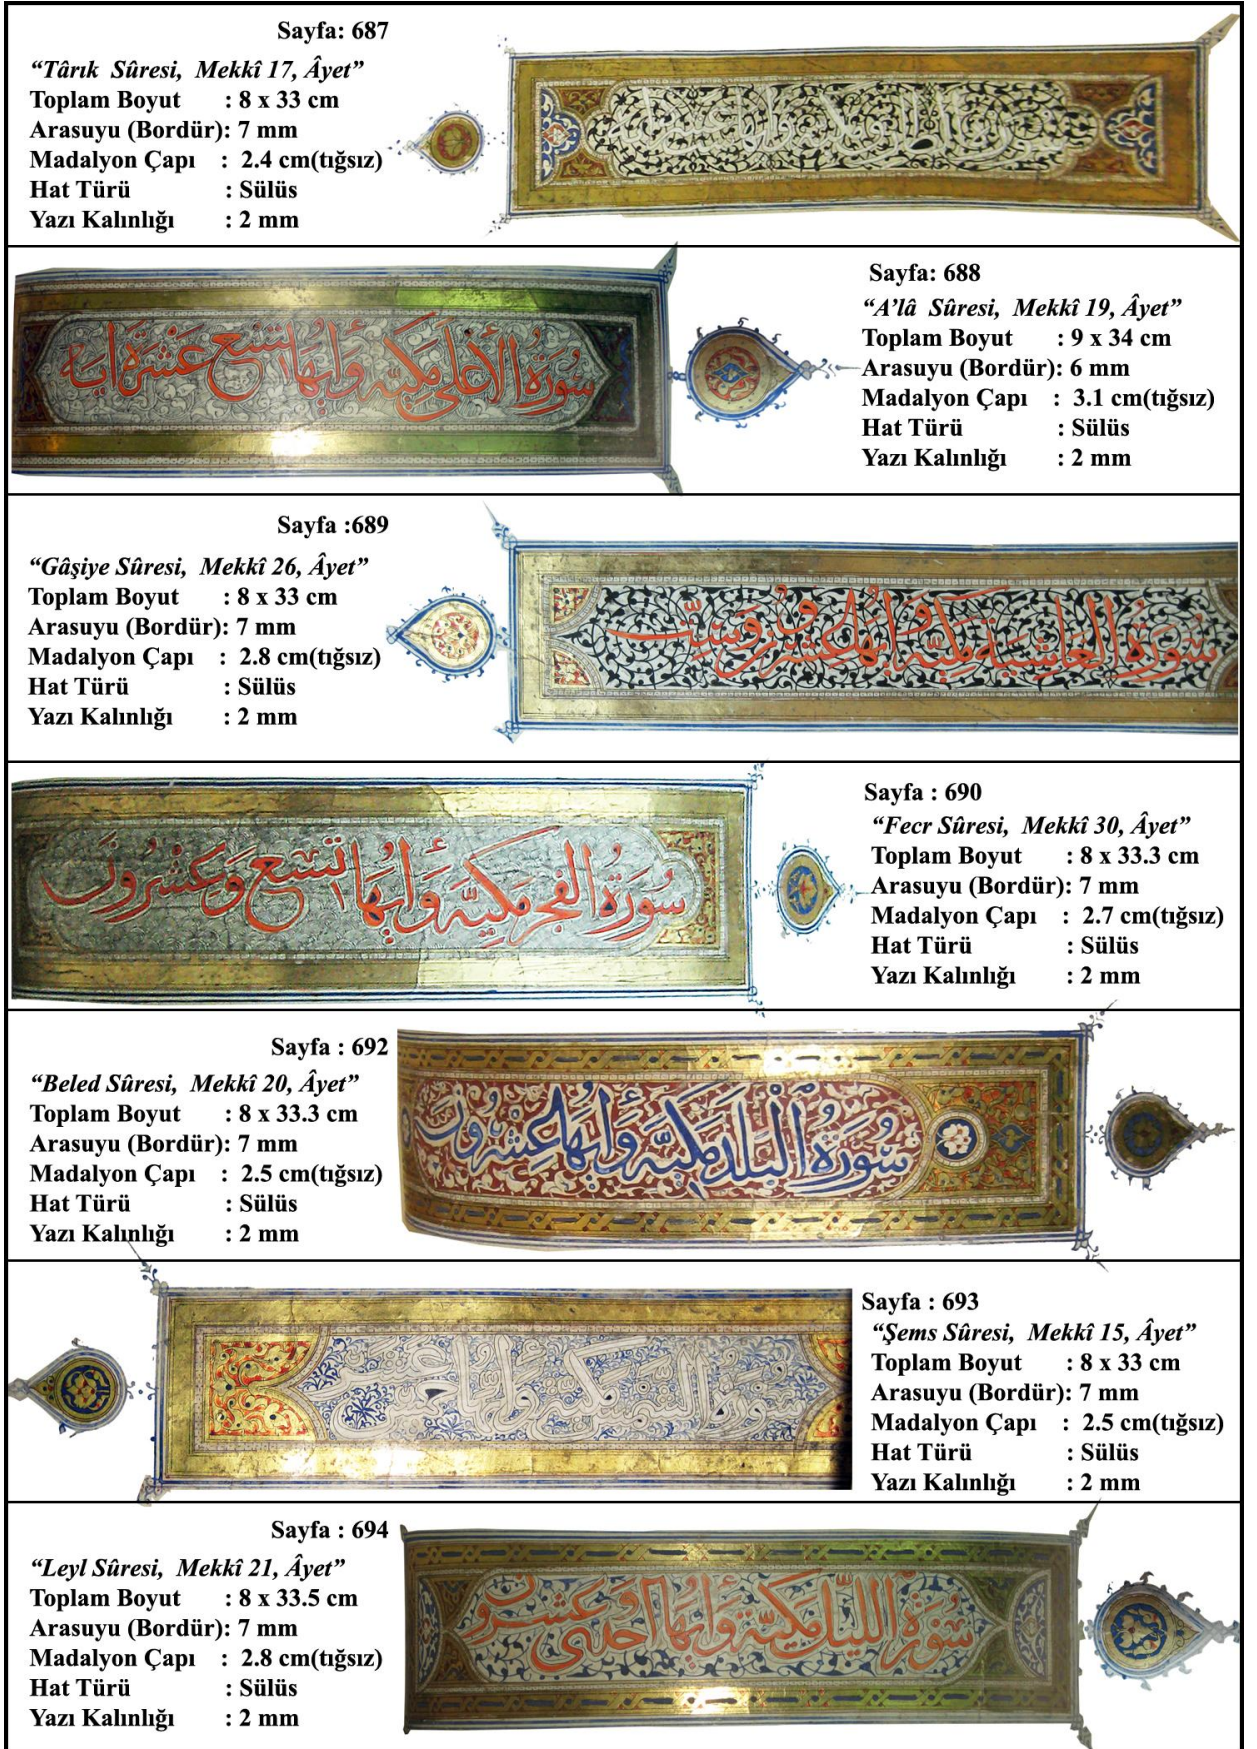 Sayfa: 687
“Târık Sûresi, Mekkî 17, Âyet”
Toplam Boyut : 8 x 33 cm
Arasuyu (Bordür): 7 mm
Madalyon Çapı : 2.4 cm(tığsız)
Hat Türü : Sülüs
Yazı Kalınlığı : 2 mm
سورة الأعلى مكيه وأيها تسع عشرة اية
Sayfa: 688
“A’lâ Sûresi, Mekkî 19, Âyet”
Toplam Boyut : 9 x 34 cm
Arasuyu (Bordür): 6 mm
Madalyon Çapı : 3.1 cm(tığsız)
Hat Türü : Sülüs
Yazı Kalınlığı : 2 mm
Sayfa :689
“Gâşiye Sûresi, Mekkî 26, Âyet”
Toplam Boyut : 8 x 33 cm
Arasuyu (Bordür): 7 mm
Madalyon Çapı : 2.8 cm(tığsız)
Hat Türü : Sülüs
Yazı Kalınlığı : 2 mm
سورة الغاشية مكيه وأيها عشرون وست
سورة الفجر مكيه وأيها تسع وعشرون
Sayfa : 690
“Fecr Sûresi, Mekkî 30, Âyet”
Toplam Boyut : 8 x 33.3 cm
Arasuyu (Bordür): 7 mm
Madalyon Çapı : 2.7 cm(tığsız)
Hat Türü : Sülüs
Yazı Kalınlığı : 2 mm
Sayfa : 692
“Beled Sûresi, Mekkî 20, Âyet”
Toplam Boyut : 8 x 33.3 cm
Arasuyu (Bordür): 7 mm
Madalyon Çapı : 2.5 cm(tığsız)
Hat Türü : Sülüs
Yazı Kalınlığı : 2 mm
سورة البلد مكيه وأيها عشرون
Sayfa : 693
“Şems Sûresi, Mekkî 15, Âyet”
Toplam Boyut : 8 x 33 cm
Arasuyu (Bordür): 7 mm
Madalyon Çapı : 2.5 cm(tığsız)
Hat Türü : Sülüs
Yazı Kalınlığı : 2 mm
Sayfa : 694
“Leyl Sûresi, Mekkî 21, Âyet”
Toplam Boyut : 8 x 33.5 cm
Arasuyu (Bordür): 7 mm
Madalyon Çapı : 2.8 cm(tığsız)
Hat Türü : Sülüs
Yazı Kalınlığı : 2 mm
سورة الليل مكية وأيها احدى وعشرون